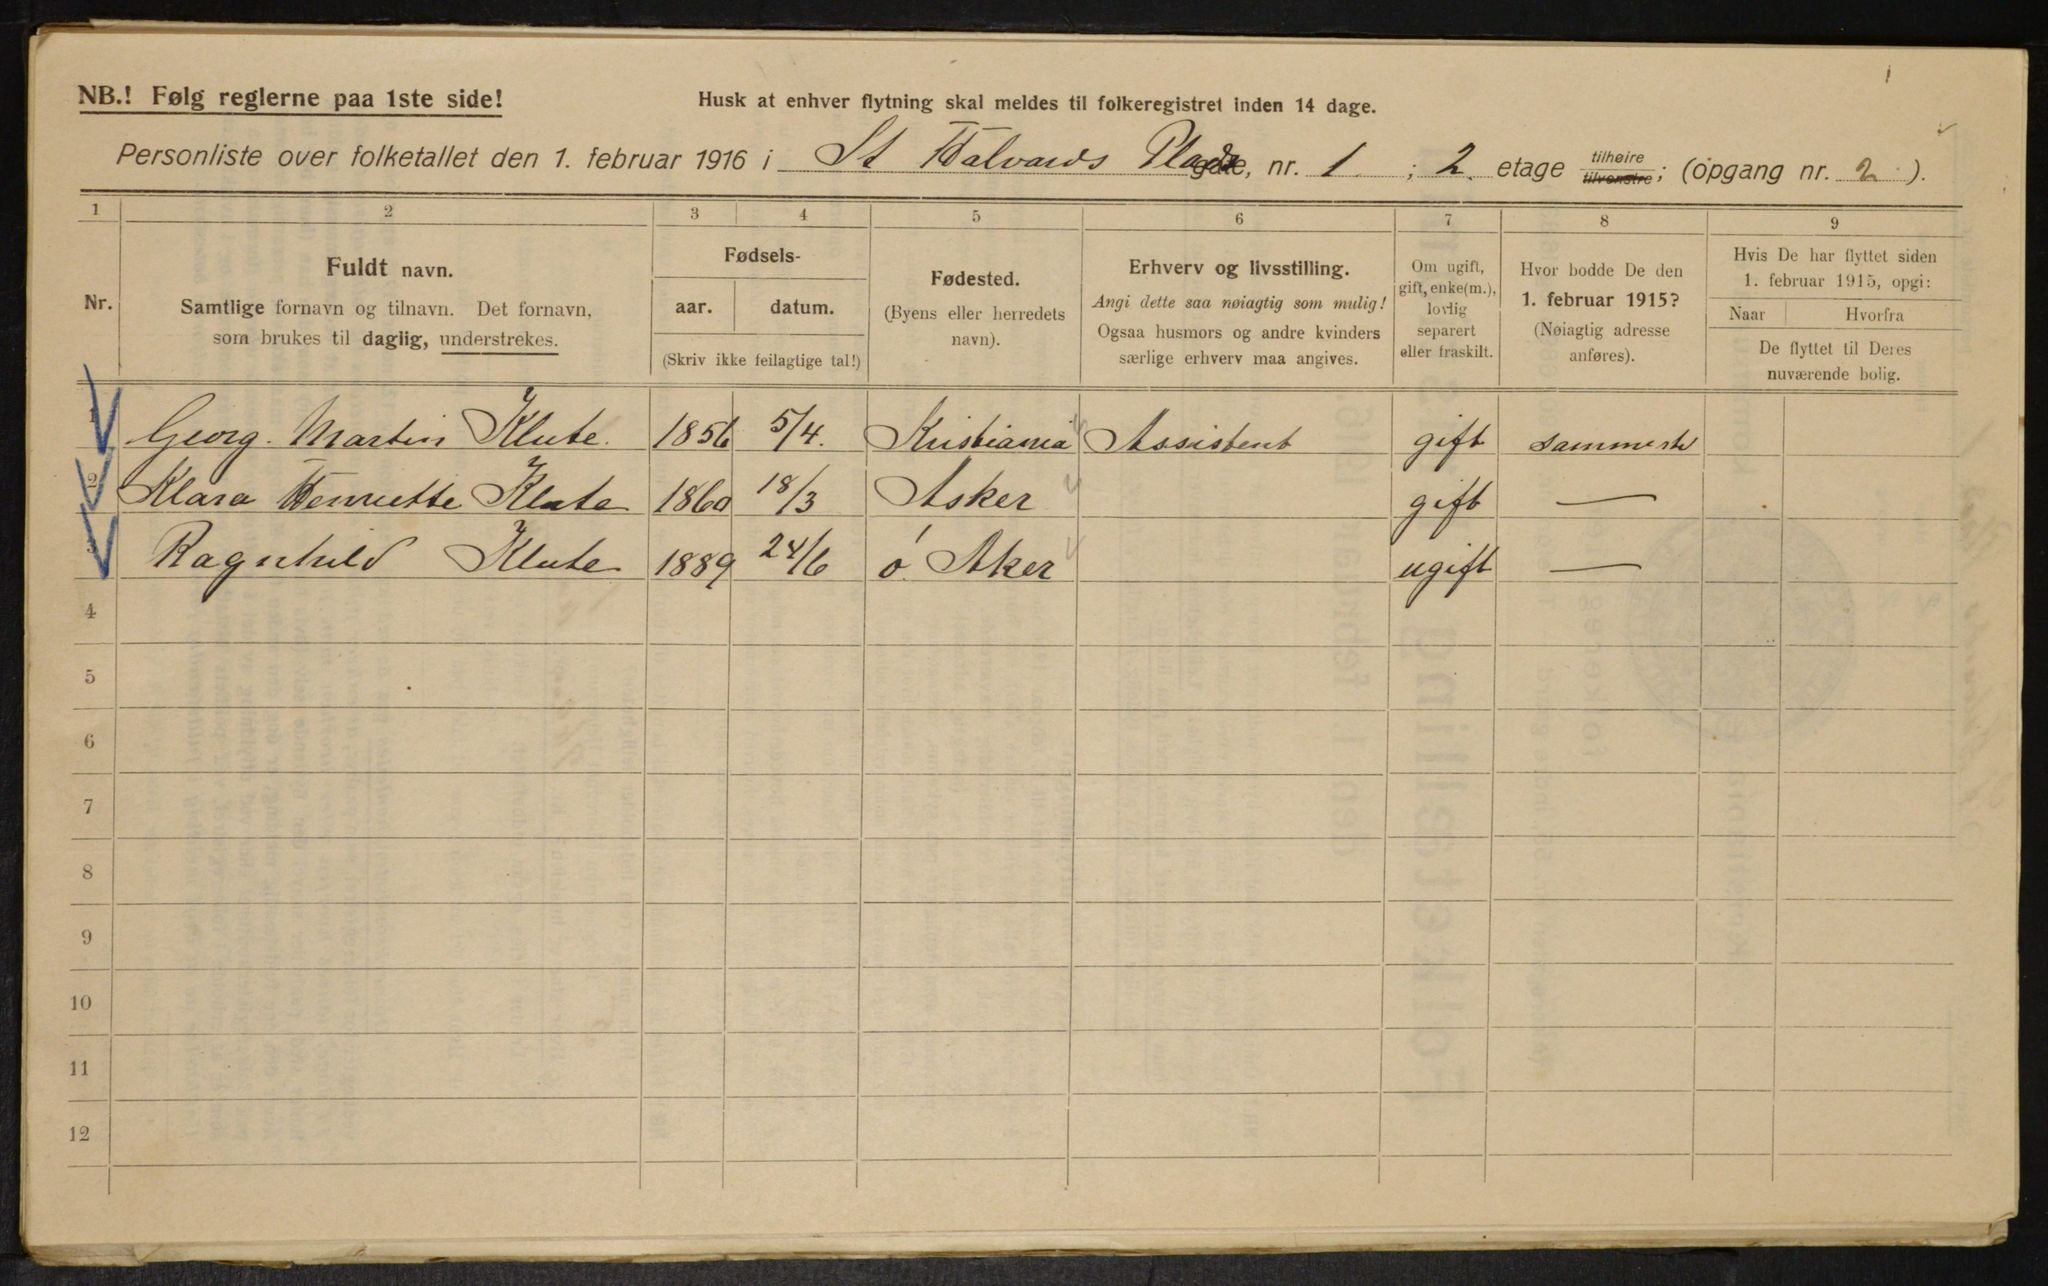 NB.! Følg reglerne paa 1ste side!
Husk at enhver flytning skal meldes til folkeregistret inden 14 dage.
Personliste over folketallet den 1. februar 1916 i St Halvards Plads gate, nr. 1. ; 2. etage tilhøire tilvenstre; (opgang nr. 2 ).
1 2 3 4 5 6 7 8 9
Nr.
Fuldt navn.
Samtlige fornavn og tilnavn. Det fornavn,
som brukes til daglig, understrekes.
Fødsels-
aar. datum.
(Skriv ikke feilagtige tal!)
Fødested.
(Byens eller herredets
navn).
Erhverv og livsstilling.
Angi dette saa nøiagtig som mulig!
Ogsaa husmors og andre kvinders
særlige erhverv maa angives.
Om ugift,
gift, enke(m.),
lovlig
separert
eller fraskilt.
Hvor bodde De den
1. februar 1915?
(Nøiagtig adresse
anføres).
Hvis De har flyttet siden
1. februar 1915, opgi:
Naar Hvorfra
De flyttet til Deres
nuværende bolig.
1 Georg. Martin Klute. 1856 5/4. Kristiania Assistent gift sammested
2 Klara Henriette Klute 1860 18/3 Asker gift —
3 Ragnhild Klute 1889 24/6 Ø. Aker ugift —
4
5
6
7
8
9
10
11
12